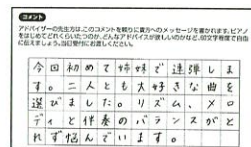 コメント
アドバイザーの先生方は、このコメントを頼りに貴方へのメッセージを書かれます。ピアノ
をはじめてどれくらいたつのか、どんなアドバイスが欲しいのかなど、60文字程度で自由
に伝えましょう。当日受付にお渡しください。
今回初めて姉妹で連弾しま
す。二人とも大好きな曲を
選びました。リズム、メロ
ディと伴奏のバランスがと
れず悩んでいます。